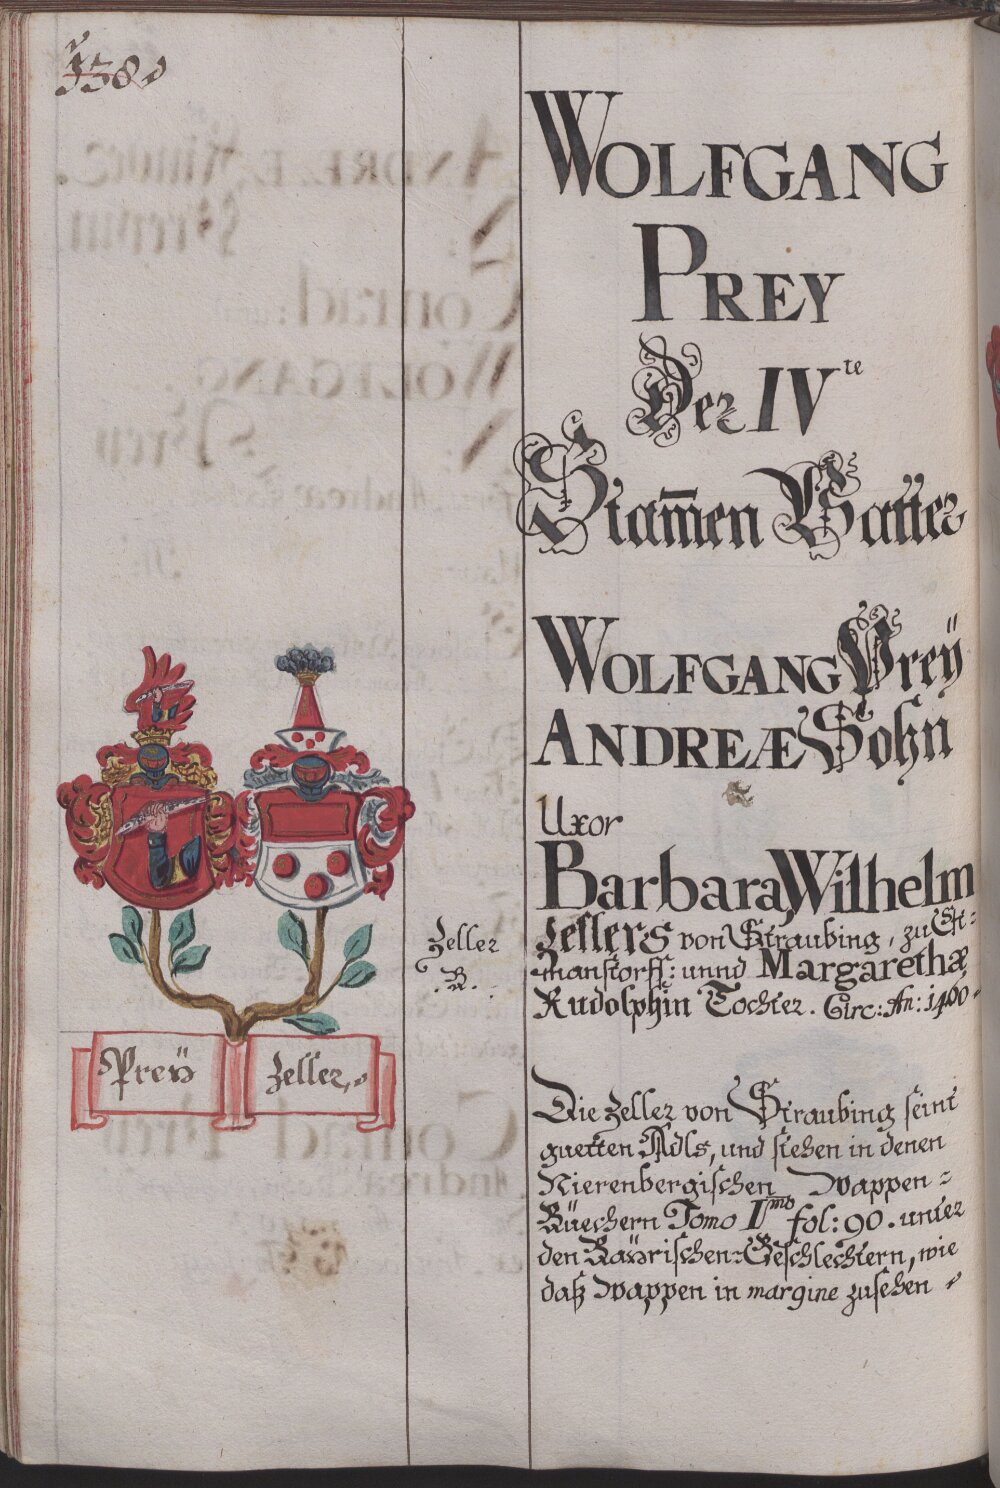 WOLFGANG
PREY
Der IV te
Stam̄en Vatter
WOLFGANG Preÿ
ANDREÆ Sohn
Uxor
Barbara, Wilhelm
Zellers von Straubing, zu
manstorff: unnd Margarethæ
Rudolphin Tochter. Circ: An: 1400
Zeller
B.
Preÿ
Zeller
Die Zeller von Straubing seint
guetten Adls, und stehen in denen
Nierenbergischen Wappen=
Büechern Tomo I mo fol: 90. unter
den Baÿrischen Geschlechtern, wie
daß Wappen in margine zusehen